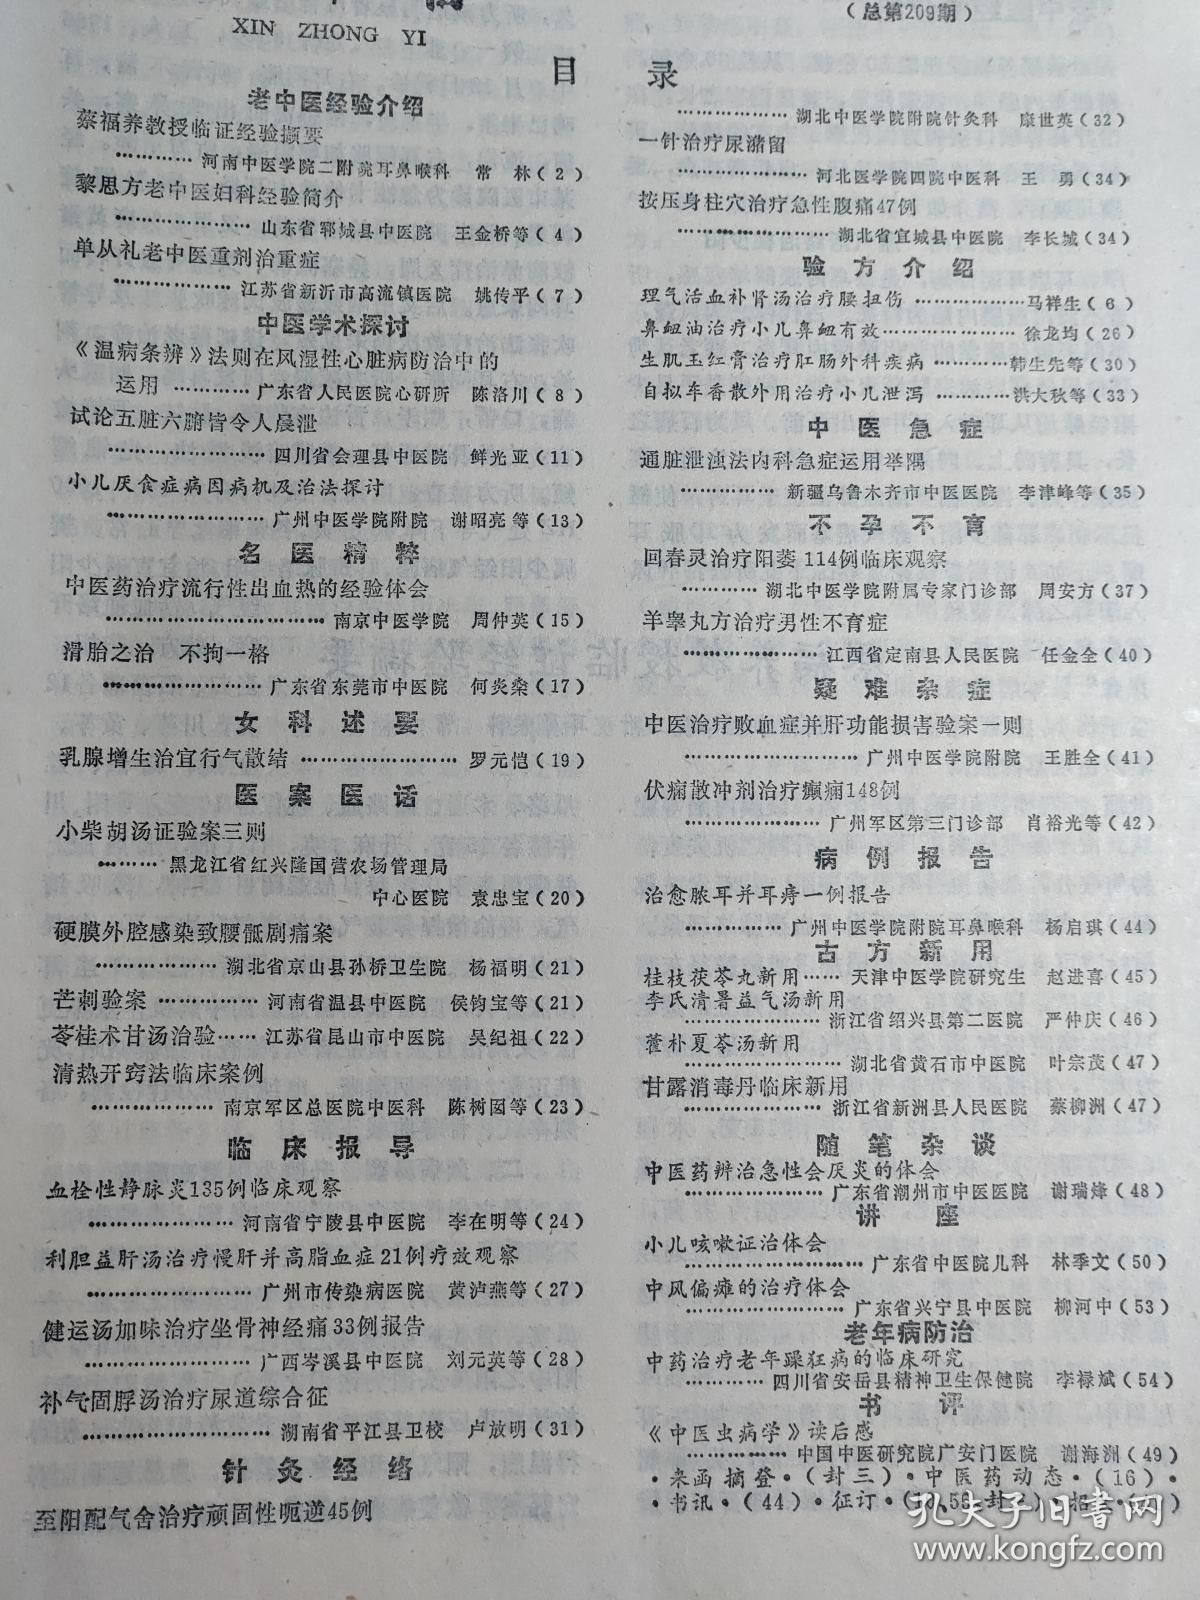 XIN ZHONG YI
(总第209期)
目 录
老中医经验介绍
蔡福养教授临证经验撷要
………… 河南中医学院二附院耳鼻喉科 常 林(2)
黎思方老中医妇科经验简介
………………… 山东省郓城县中医院 王金桥等(4)
单从礼老中医重剂治重症
……………… 江苏省新沂市高流镇医院 姚传平(7)
中医学术探讨
《温病条辨》法则在风湿性心脏病防治中的
运用 ………… 广东省人民医院心研所 陈洛川(8)
试论五脏六腑皆令人晨泄
…………………… 四川省会理县中医院 鲜光亚(11)
小儿厌食症病因病机及治法探讨
…………………… 广州中医学院附院 谢昭亮等(13)
名医精粹
中医药治疗流行性出血热的经验体会
…………………………… 南京中医学院 周仲英(15)
滑胎之治 不拘一格
…………………… 广东省东莞市中医院 何炎燊(17)
女科述要
乳腺增生治宜行气散结 …………………… 罗元恺(19)
医案医话
小柴胡汤证验案三则
……… 黑龙江省红兴隆国营农场管理局
中心医院 袁忠宝(20)
硬膜外腔感染致腰骶剧痛案
……………… 湖北省京山县孙桥卫生院 杨福明(21)
芒刺验案 …………… 河南省温县中医院 侯钧宝等(21)
苓桂术甘汤治验…… 江苏省昆山市中医院 吴纪祖(22)
清热开窍法临床案例
……………… 南京军区总医院中医科 陈树囡等(23)
临床报导
血栓性静脉炎135例临床观察
………………… 河南省宁陵县中医院 李在明等(24)
利胆益肝汤治疗慢肝并高脂血症21例疗效观察
…………………… 广州市传染病医院 黄泸燕等(27)
健运汤加味治疗坐骨神经痛33例报告
…………………… 广西岑溪县中医院 刘元英等(28)
补气固脬汤治疗尿道综合征
……………………… 湖南省平江县卫校 卢放明(31)
针灸经络
至阳配气舍治疗顽固性呃逆45例
………………… 湖北中医学院附院针灸科 康世英(32)
一针治疗尿潴留
………………… 河北医学院四院中医科 王 勇(34)
按压身柱穴治疗急性腹痛47例
…………………… 湖北省宜城县中医院 李长城(34)
验方介绍
理气活血补肾汤治疗腰扭伤 ……………… 马祥生(6)
鼻衄油治疗小儿鼻衄有效………………… 徐龙均(26)
生肌玉红膏治疗肛肠外科疾病 ………… 韩生先等(30)
自拟车香散外用治疗小儿泄泻 ………… 洪大秋等(33)
中医急症
通脏泄浊法内科急症运用举隅
…………… 新疆乌鲁木齐市中医医院 李津峰等(35)
不孕不育
回春灵治疗阳萎114例临床观察
………… 湖北中医学院附属专家门诊部 周安方(37)
羊睾丸方治疗男性不育症
………………… 江西省定南县人民医院 任金全(40)
疑难杂症
中医治疗败血症并肝功能损害验案一则
……………………… 广州中医学院附院 王胜全(41)
伏痫散冲剂治疗癫痫148例
………………… 广州军区第三门诊部 肖裕光等(42)
病例报告
治愈脓耳并耳痔一例报告
…………… 广州中医学院附院耳鼻喉科 杨启琪(44)
古方新用
桂枝茯苓丸新用…… 天津中医学院研究生 赵进喜(45)
李氏清暑益气汤新用
………………… 浙江省绍兴县第二医院 严仲庆(46)
藿朴夏苓汤新用
…………………… 湖北省黄石市中医院 叶宗茂(47)
甘露消毒丹临床新用
………………… 浙江省新洲县人民医院 蔡柳洲(47)
随笔杂谈
中医药辨治急性会厌炎的体会
………………… 广东省潮州市中医医院 谢瑞烽(48)
讲 座
小儿咳嗽证治体会
……………………… 广东省中医院儿科 林季文(50)
中风偏瘫的治疗体会
…………………… 广东省兴宁县中医院 柳河中(53)
老年病防治
中药治疗老年躁狂病的临床研究
………… 四川省安岳县精神卫生保健院 李禄斌(54)
书 评
《中医虫病学》读后感
…………… 中国中医研究院广安门医院 谢海洲(49)
·来函摘登·(封三)·中医药动态·(16)·
·书讯·(44)·征订·
孔夫子旧书网
www.kongfz.com